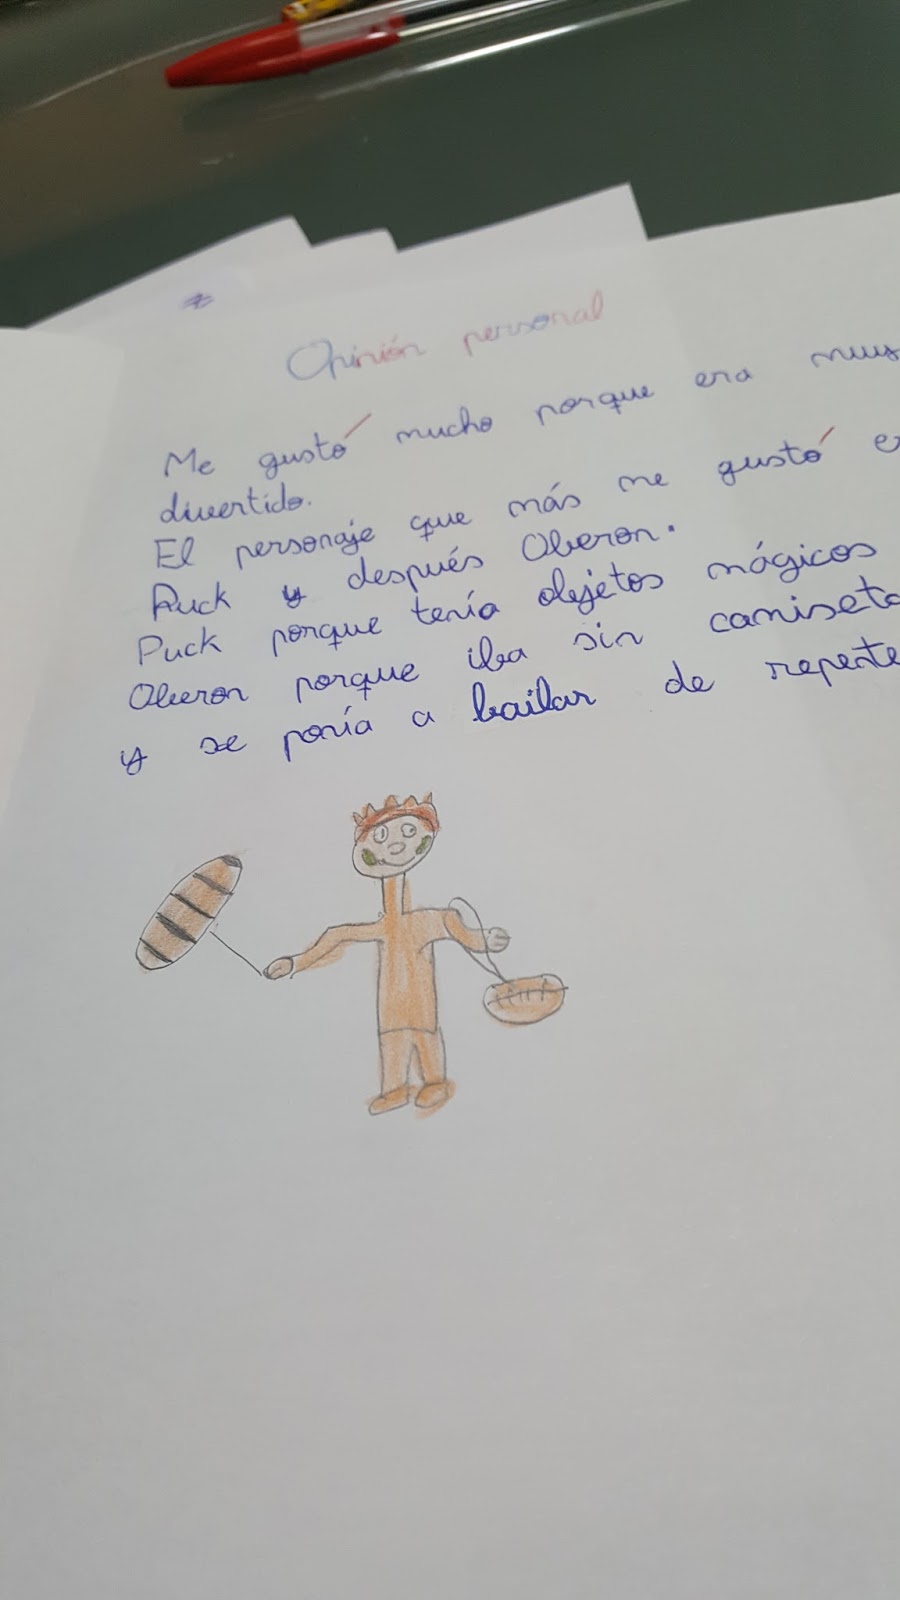 Opinión personal
Me gustó mucho porque era muy
divertido.
El personaje que más me gustó
Puck y después Oberon.
Puck porque tenía objetos mágicos
Oberon porque iba sin camiseta
y se ponía a bailar de repente